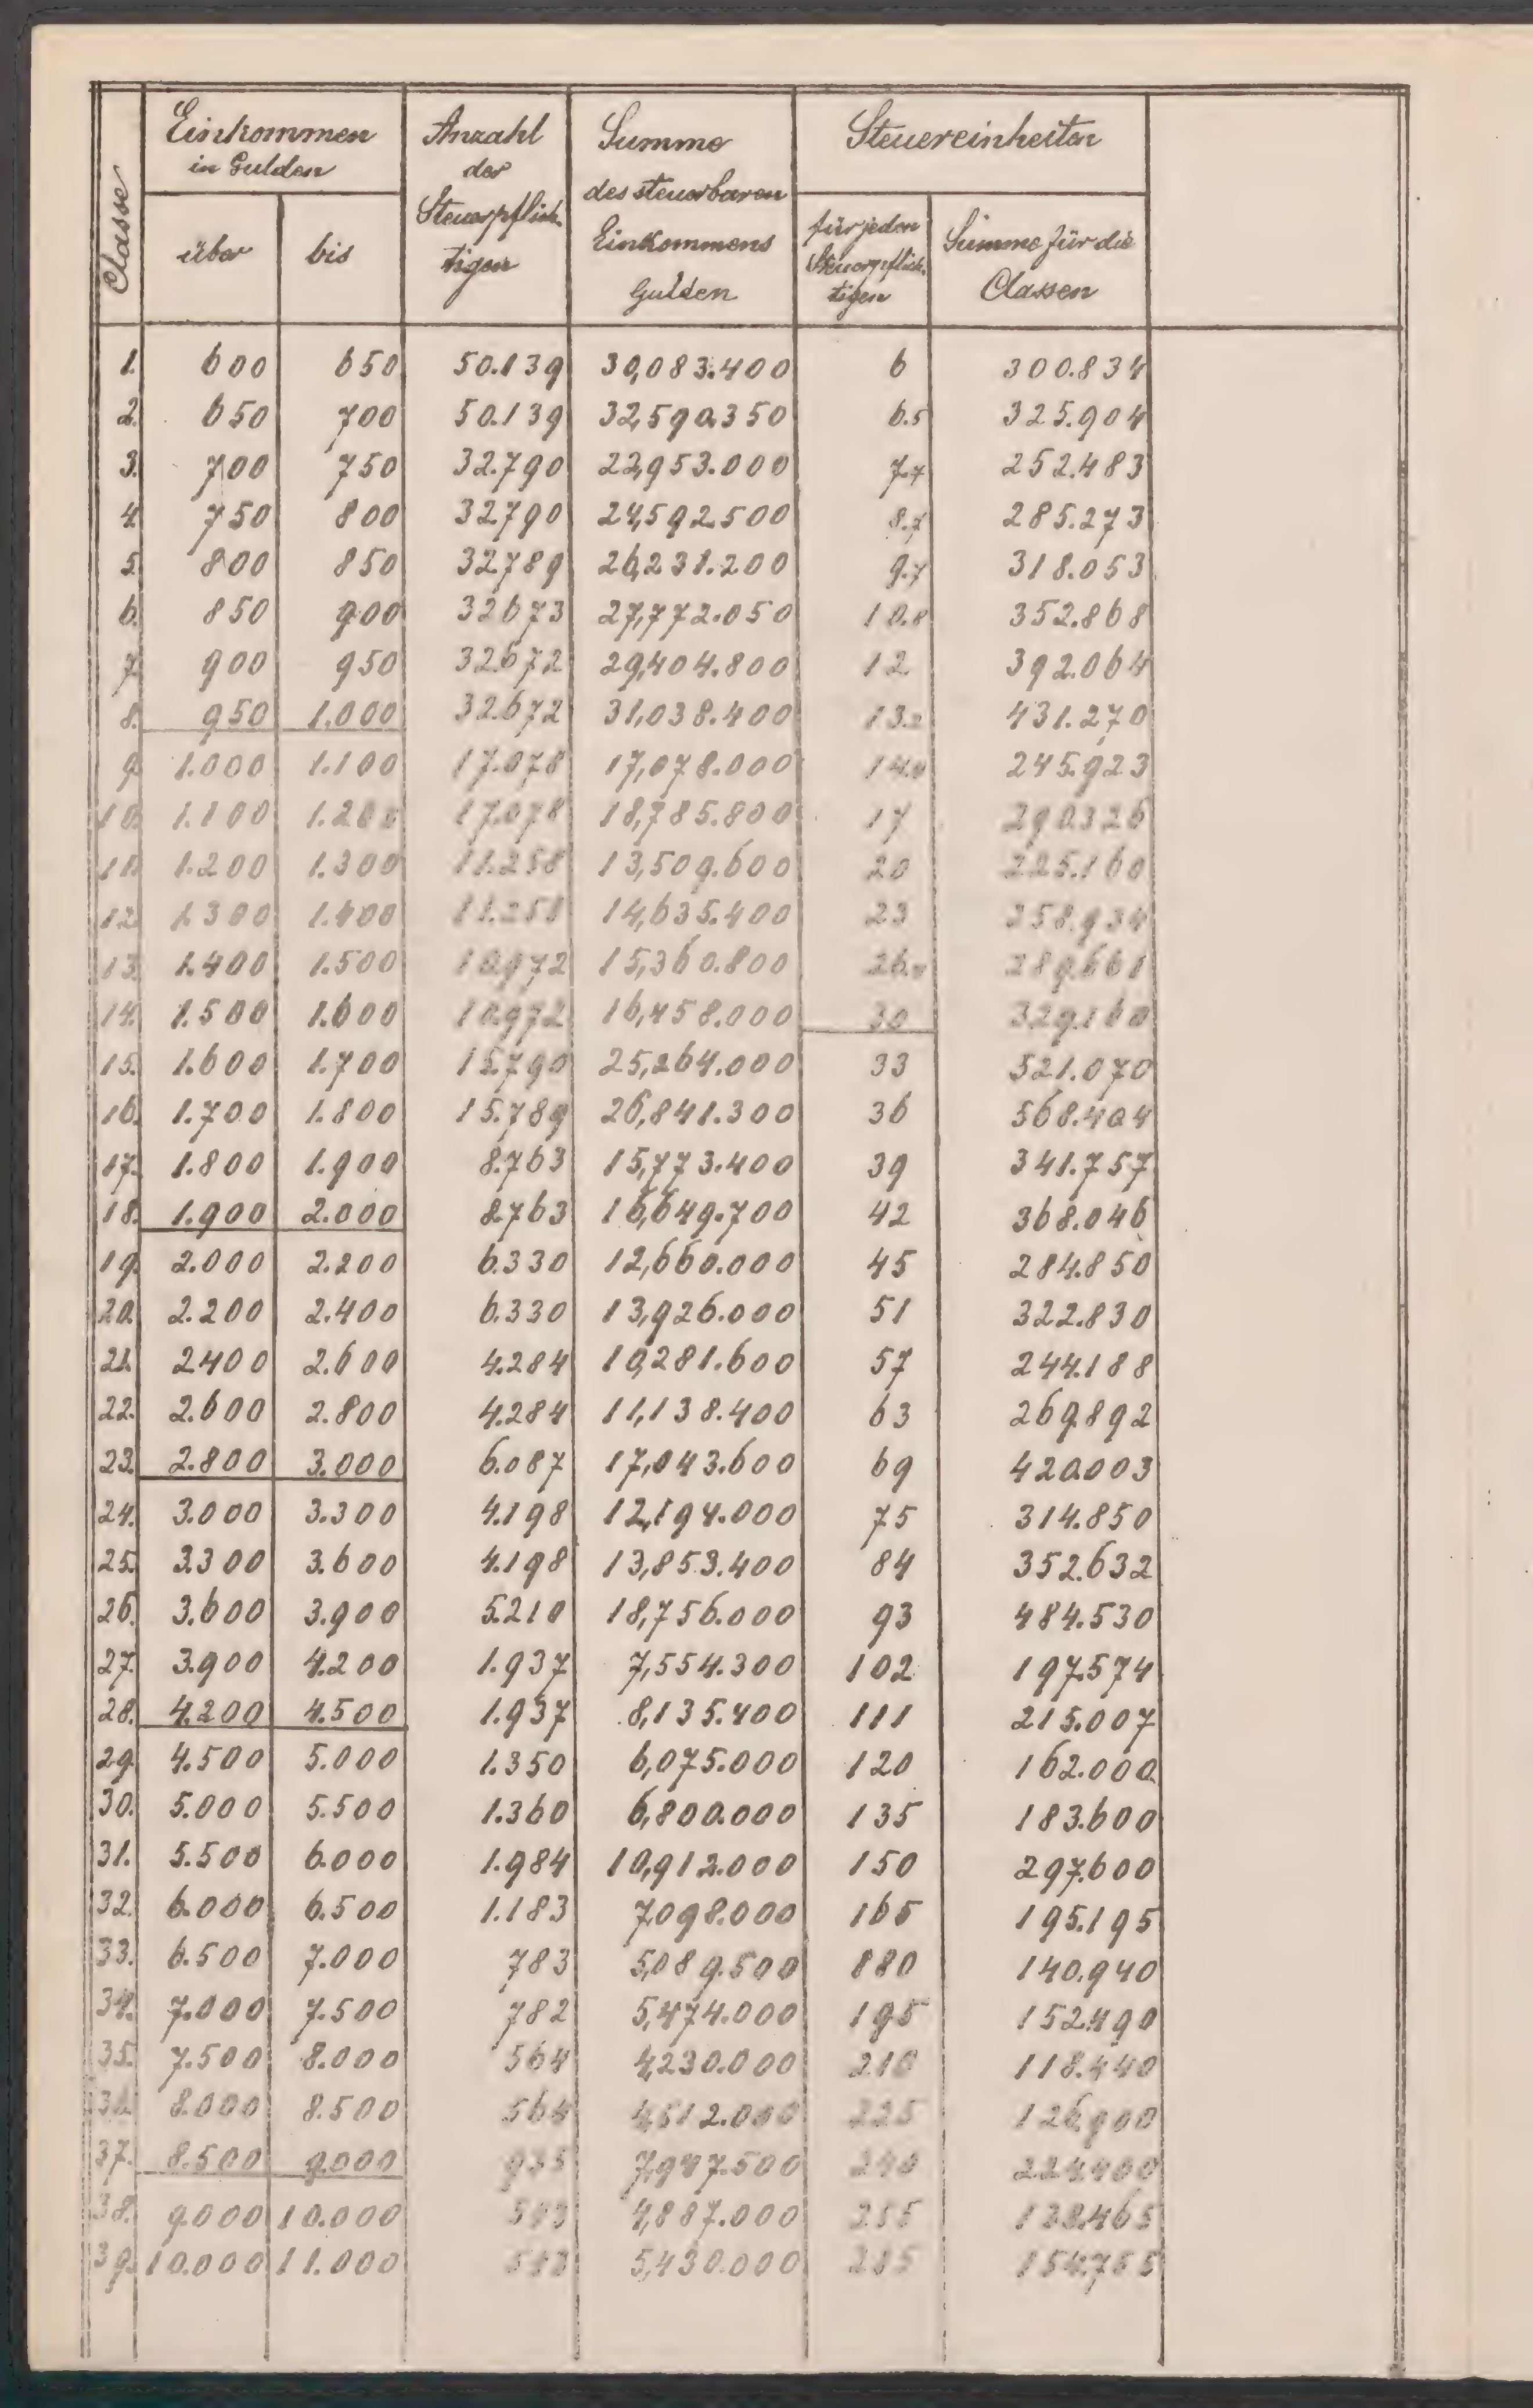 Classe
Einkommen
in Gulden
über bis
Anzahl
der
Steuerpflich-
tigen
Summe
des steuerbaren
Einkommens
Gulden
Steuereinheiten
für jeden
Steuerpflich-
tigen
Summe für die
Classen
1. 600 650 50.139 30,083.400 6 300.834
2. 650 700 50.139 32,590.350 6.5 325.904
3. 700 750 32.790 22,953.000 7.7 252.483
4. 750 800 32.790 24,592.500 8.7 285.273
5. 800 850 32.789 26,231.200 9.7 318.053
6. 850 900 32.673 27,772.050 10.8 352.868
7. 900 950 32.672 29,404.800 12 392.064
8. 950 1.000 32.672 31,038.400 13.2 431.270
9. 1.000 1.100 17.078 17,078.000 14.4 245.923
10. 1.100 1.200 17.078 18,785.800 17 290.326
11. 1.200 1.300 11.258 13,509.600 20 225.160
12. 1.300 1.400 11.258 14,635.400 23 258.934
13. 1.400 1.500 10.972 15,360.800 26.4 289.661
14. 1.500 1.600 10.972 16,458.000 30 329.160
15. 1.600 1.700 15.790 25,264.000 33 521.070
16. 1.700 1.800 15.789 26,841.300 36 568.404
17. 1.800 1.900 8.763 15,773.400 39 341.757
18. 1.900 2.000 8.763 16,649.700 42 368.046
19. 2.000 2.200 6.330 12,660.000 45 284.850
20. 2.200 2.400 6.330 13,926.000 51 322.830
21. 2.400 2.600 4.284 10,281.600 57 244.188
22. 2.600 2.800 4.284 11,138.400 63 269.892
23. 2.800 3.000 6.087 17,043.600 69 420.003
24. 3.000 3.300 4.198 12,194.000 75 314.850
25. 3.300 3.600 4.198 13,853.400 84 352.632
26. 3.600 3.900 5.210 18,756.000 93 484.530
27. 3.900 4.200 1.937 7,554.300 102 197.574
28. 4.200 4.500 1.937 8,135.400 111 215.007
29. 4.500 5.000 1.350 6,075.000 120 162.000
30. 5.000 5.500 1.360 6,800.000 135 183.600
31. 5.500 6.000 1.984 10,912.000 150 297.600
32. 6.000 6.500 1.183 7,098.000 165 195.195
33. 6.500 7.000 783 5,089.500 180 140.940
34. 7.000 7.500 782 5,474.000 195 152.490
35. 7.500 8.000 564 4,230.000 210 118.440
36. 8.000 8.500 564 4,512.000 225 126.900
37. 8.500 9.000 935 7,947.500 240 224.400
38. 9.000 10.000 543 4,887.000 255 138.465
39. 10.000 11.000 543 5,430.000 285 154.755